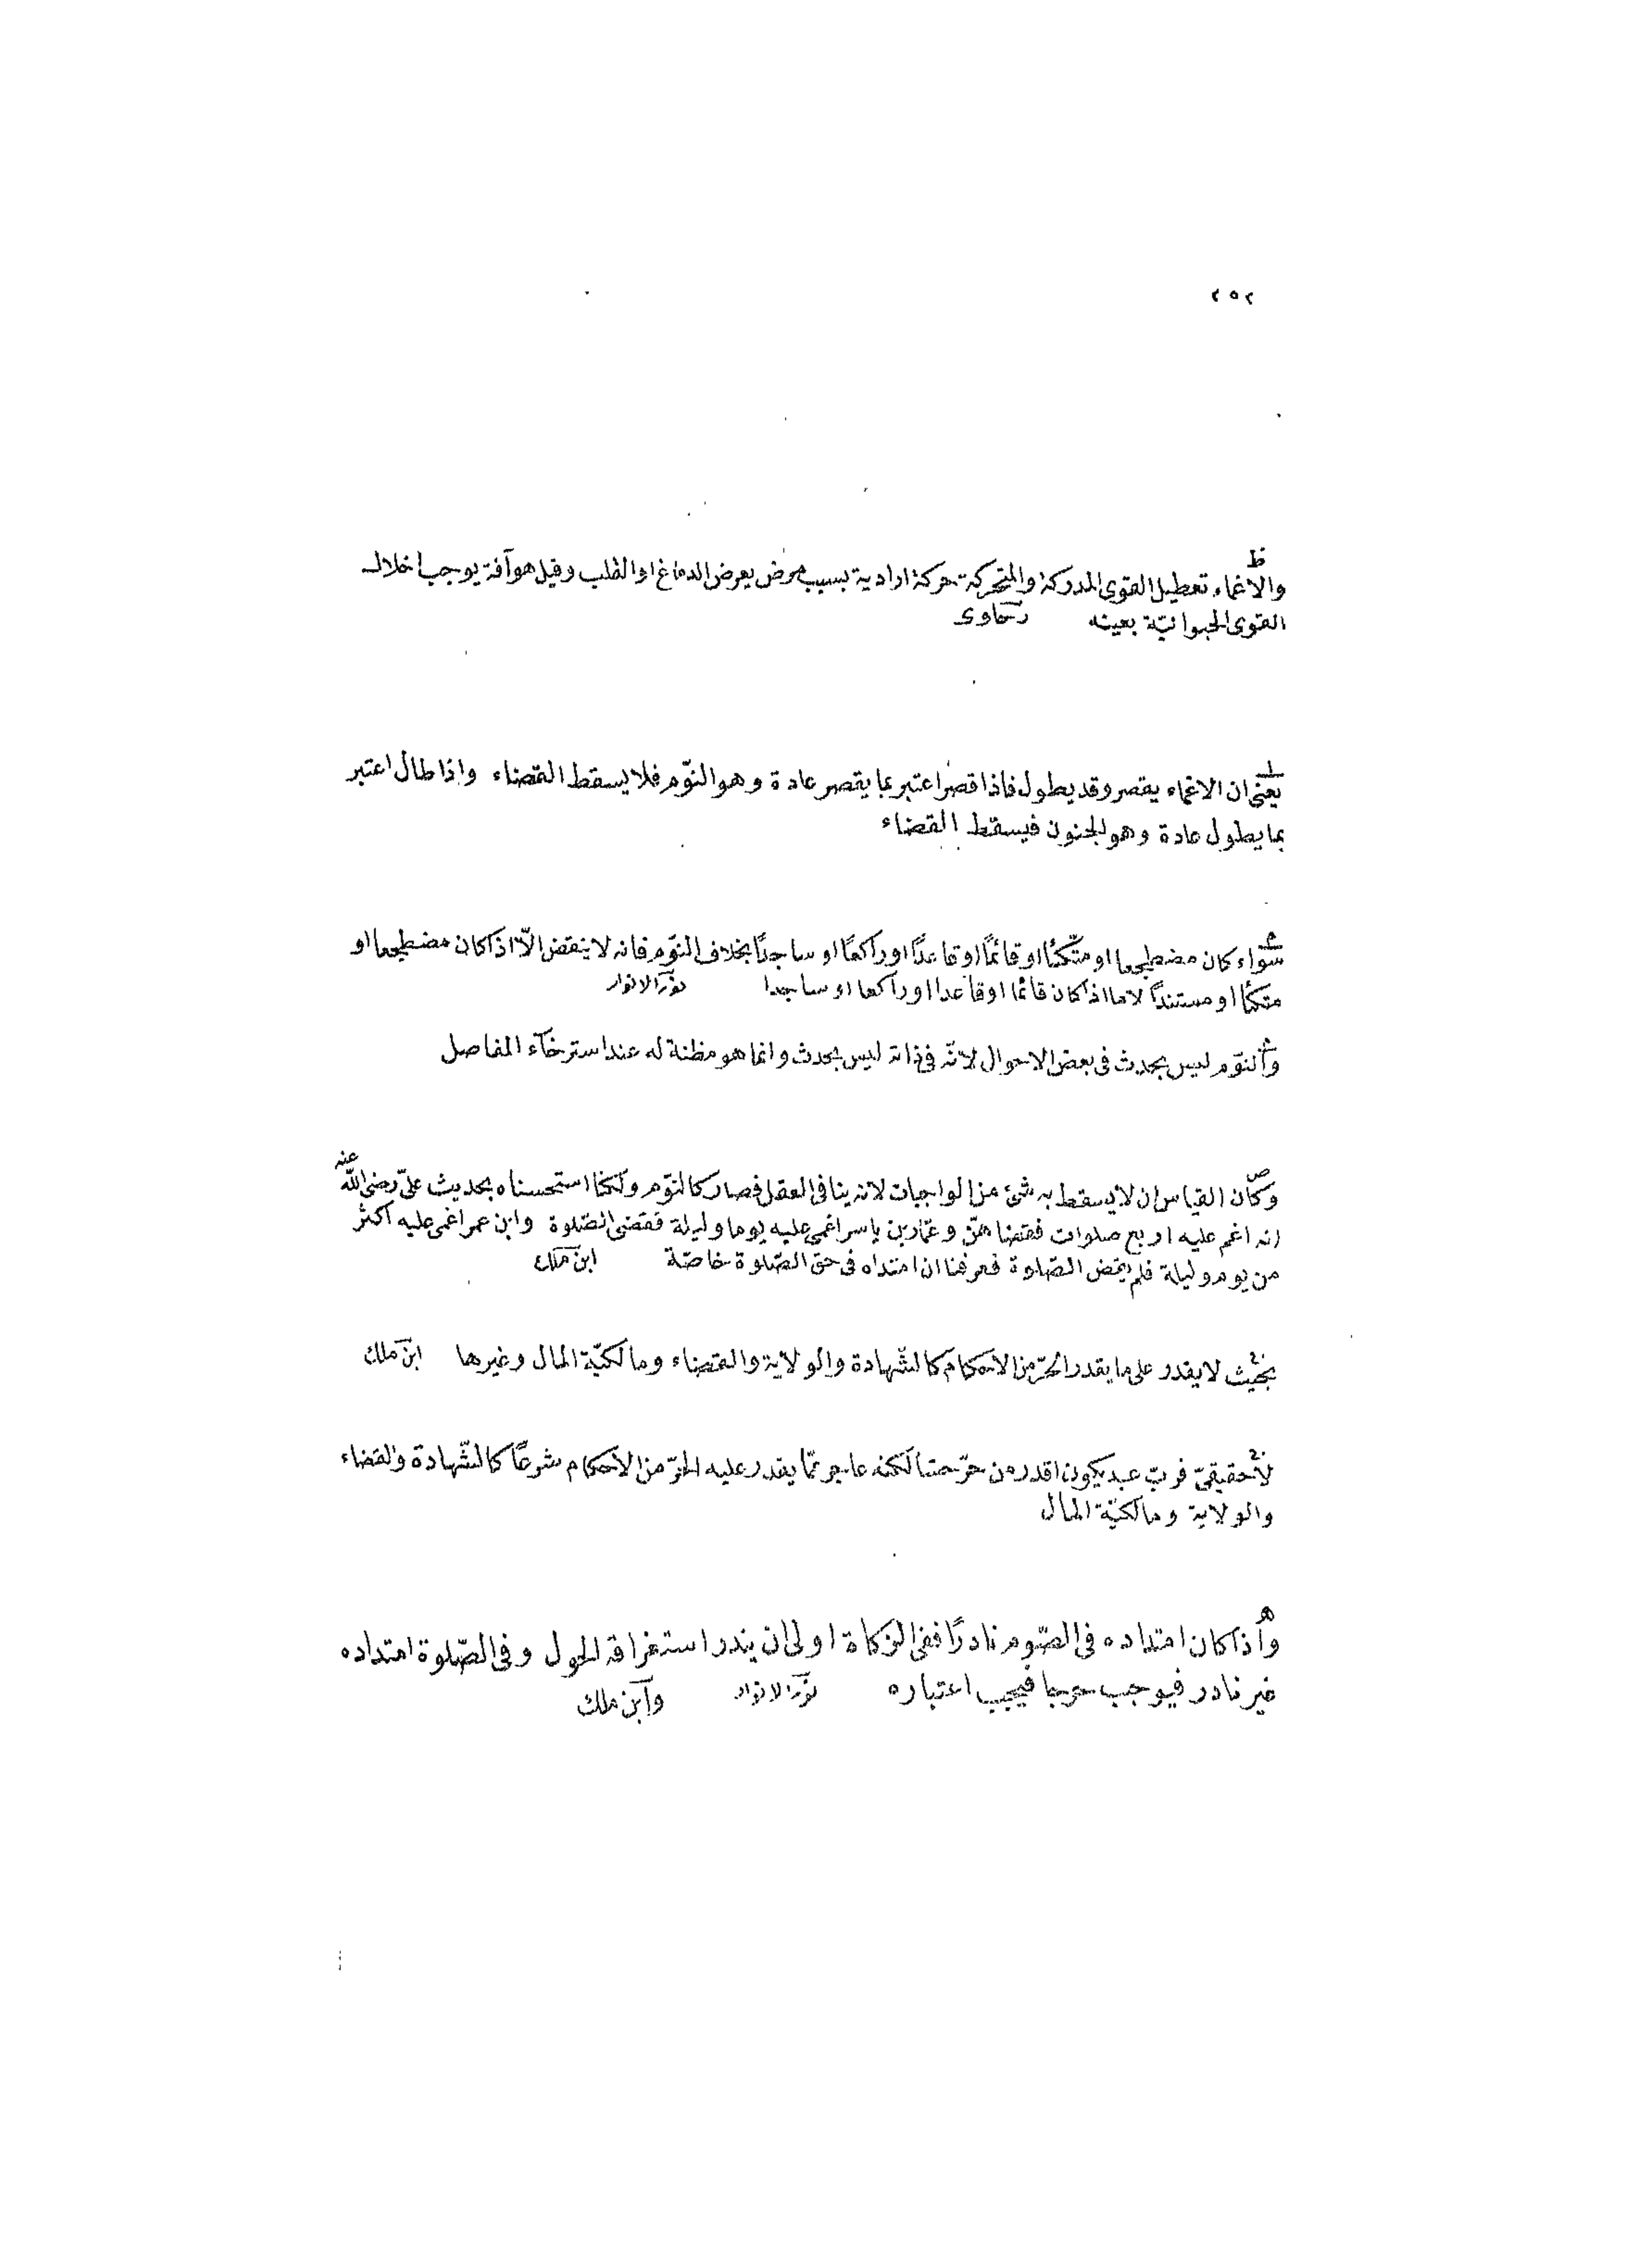 ٢٥٢
ط
والاغماء تعطيل القوى المدركة والمتحركة حركة ارادية بسبب مرض يعرض الدماغ او القلب وقيل هو آفة يوجب اخلال
القوى الحيوانيّة بعينه رهاوى
يعنى ان الاغماء يقصر وقد يطول فاذا قصر اعتبر بما يقصر عادة وهو النوّم فلا يسقط القضاء واذا طال اعتبر
بما يطول عادة وهو الجنون فيسقط القضاء
سواء كان مضطجعا او متّكئا او قائمًا او قاعدًا او راكعًا او ساجدًا بخلاف النوّم فانه لا ينقض الّا اذا كان مضطجعا او
متكئا او مستندًا لا ما اذا كان قائما او قاعدا او راكعا او ساجدا نور الانوار
والنوّم ليس بحدث فى بعض الاحوال لانّه فى ذاته ليس بحدث وانما هو مظنة له عند استرخآء المفاصل
وكان القياس ان لا يسقط به شئ من الواجبات لانه ينافى العقل فصار كالنوّم ولكنا استحسناه بحديث علىّ رضى اللّه عنه
انه اغم عليه اربع صلوات فقضاهنّ وعمّار بن ياسر اغمى عليه يوما وليلة فقضى الصّلوة وابن عمر اغمى عليه اكثر
من يوم وليلة فلم يقض الصّلوة فعرفنا ان امتداه فى حق الصّلوة خاصّة ابن ملك
بحيث لا يقدر على ما يقدر الحرّ من الاحكام كالشّهادة والولاية والقضاء ومالكيّة المال وغيرها ابن ملك
لا حقيقىّ فربّ عبد يكون اقدر من حرّ حسّا لكنه عاجر ممّا يقدر عليه الحرّ من الاحكام شرعًا كالشّهادة والقضاء
والولاية ومالكيّة المال
ه
واذا كان امتداده فى الصّوم نادرًا ففى الزكاة اولى ان يندر استغراقه الحول وفى الصّلوة امتداده
غير نادر فيوجب حرجا فيجب اعتباره نور الانوار وابن ملك